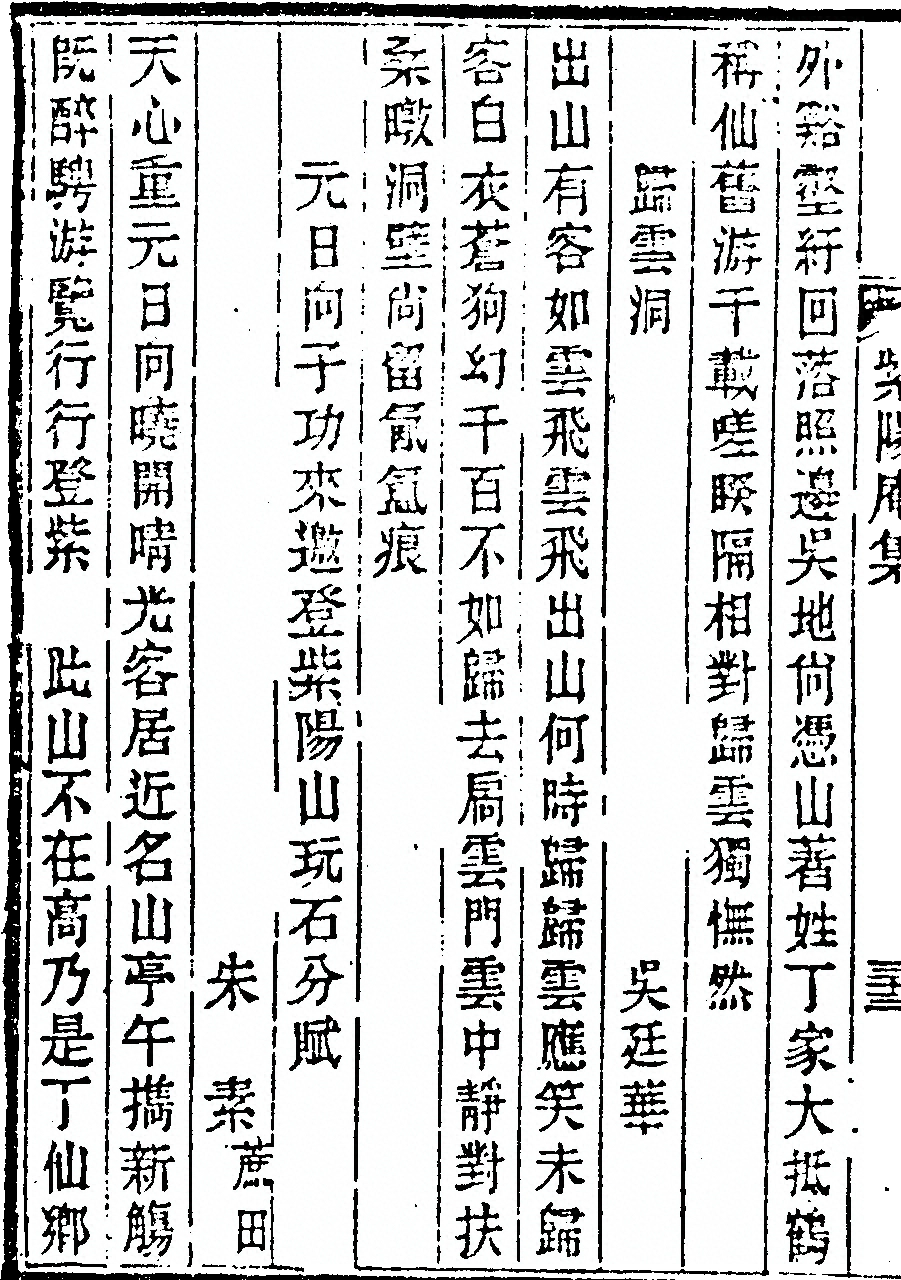 紫陽庵集
外谿壑紆回落照邊吳地尙憑山著姓丁家大抵鶴
稱仙舊游千載嗟睽隔相對歸雲獨憮然
歸雲洞 吳廷華
出山有客如雲飛雲飛出山何時歸歸雲應笑未歸
客白衣蒼狗幻千百不如歸去扃雲門雲中靜對扶
桑暾洞壁尙留氤氳痕
元日向子功來邀登紫陽山玩石分賦
朱 素 蔗田
天心重元日向曉開晴光客居近名山亭午攜新觴
既醉騁游覽行行登紫 此山不在高乃是丁仙鄉